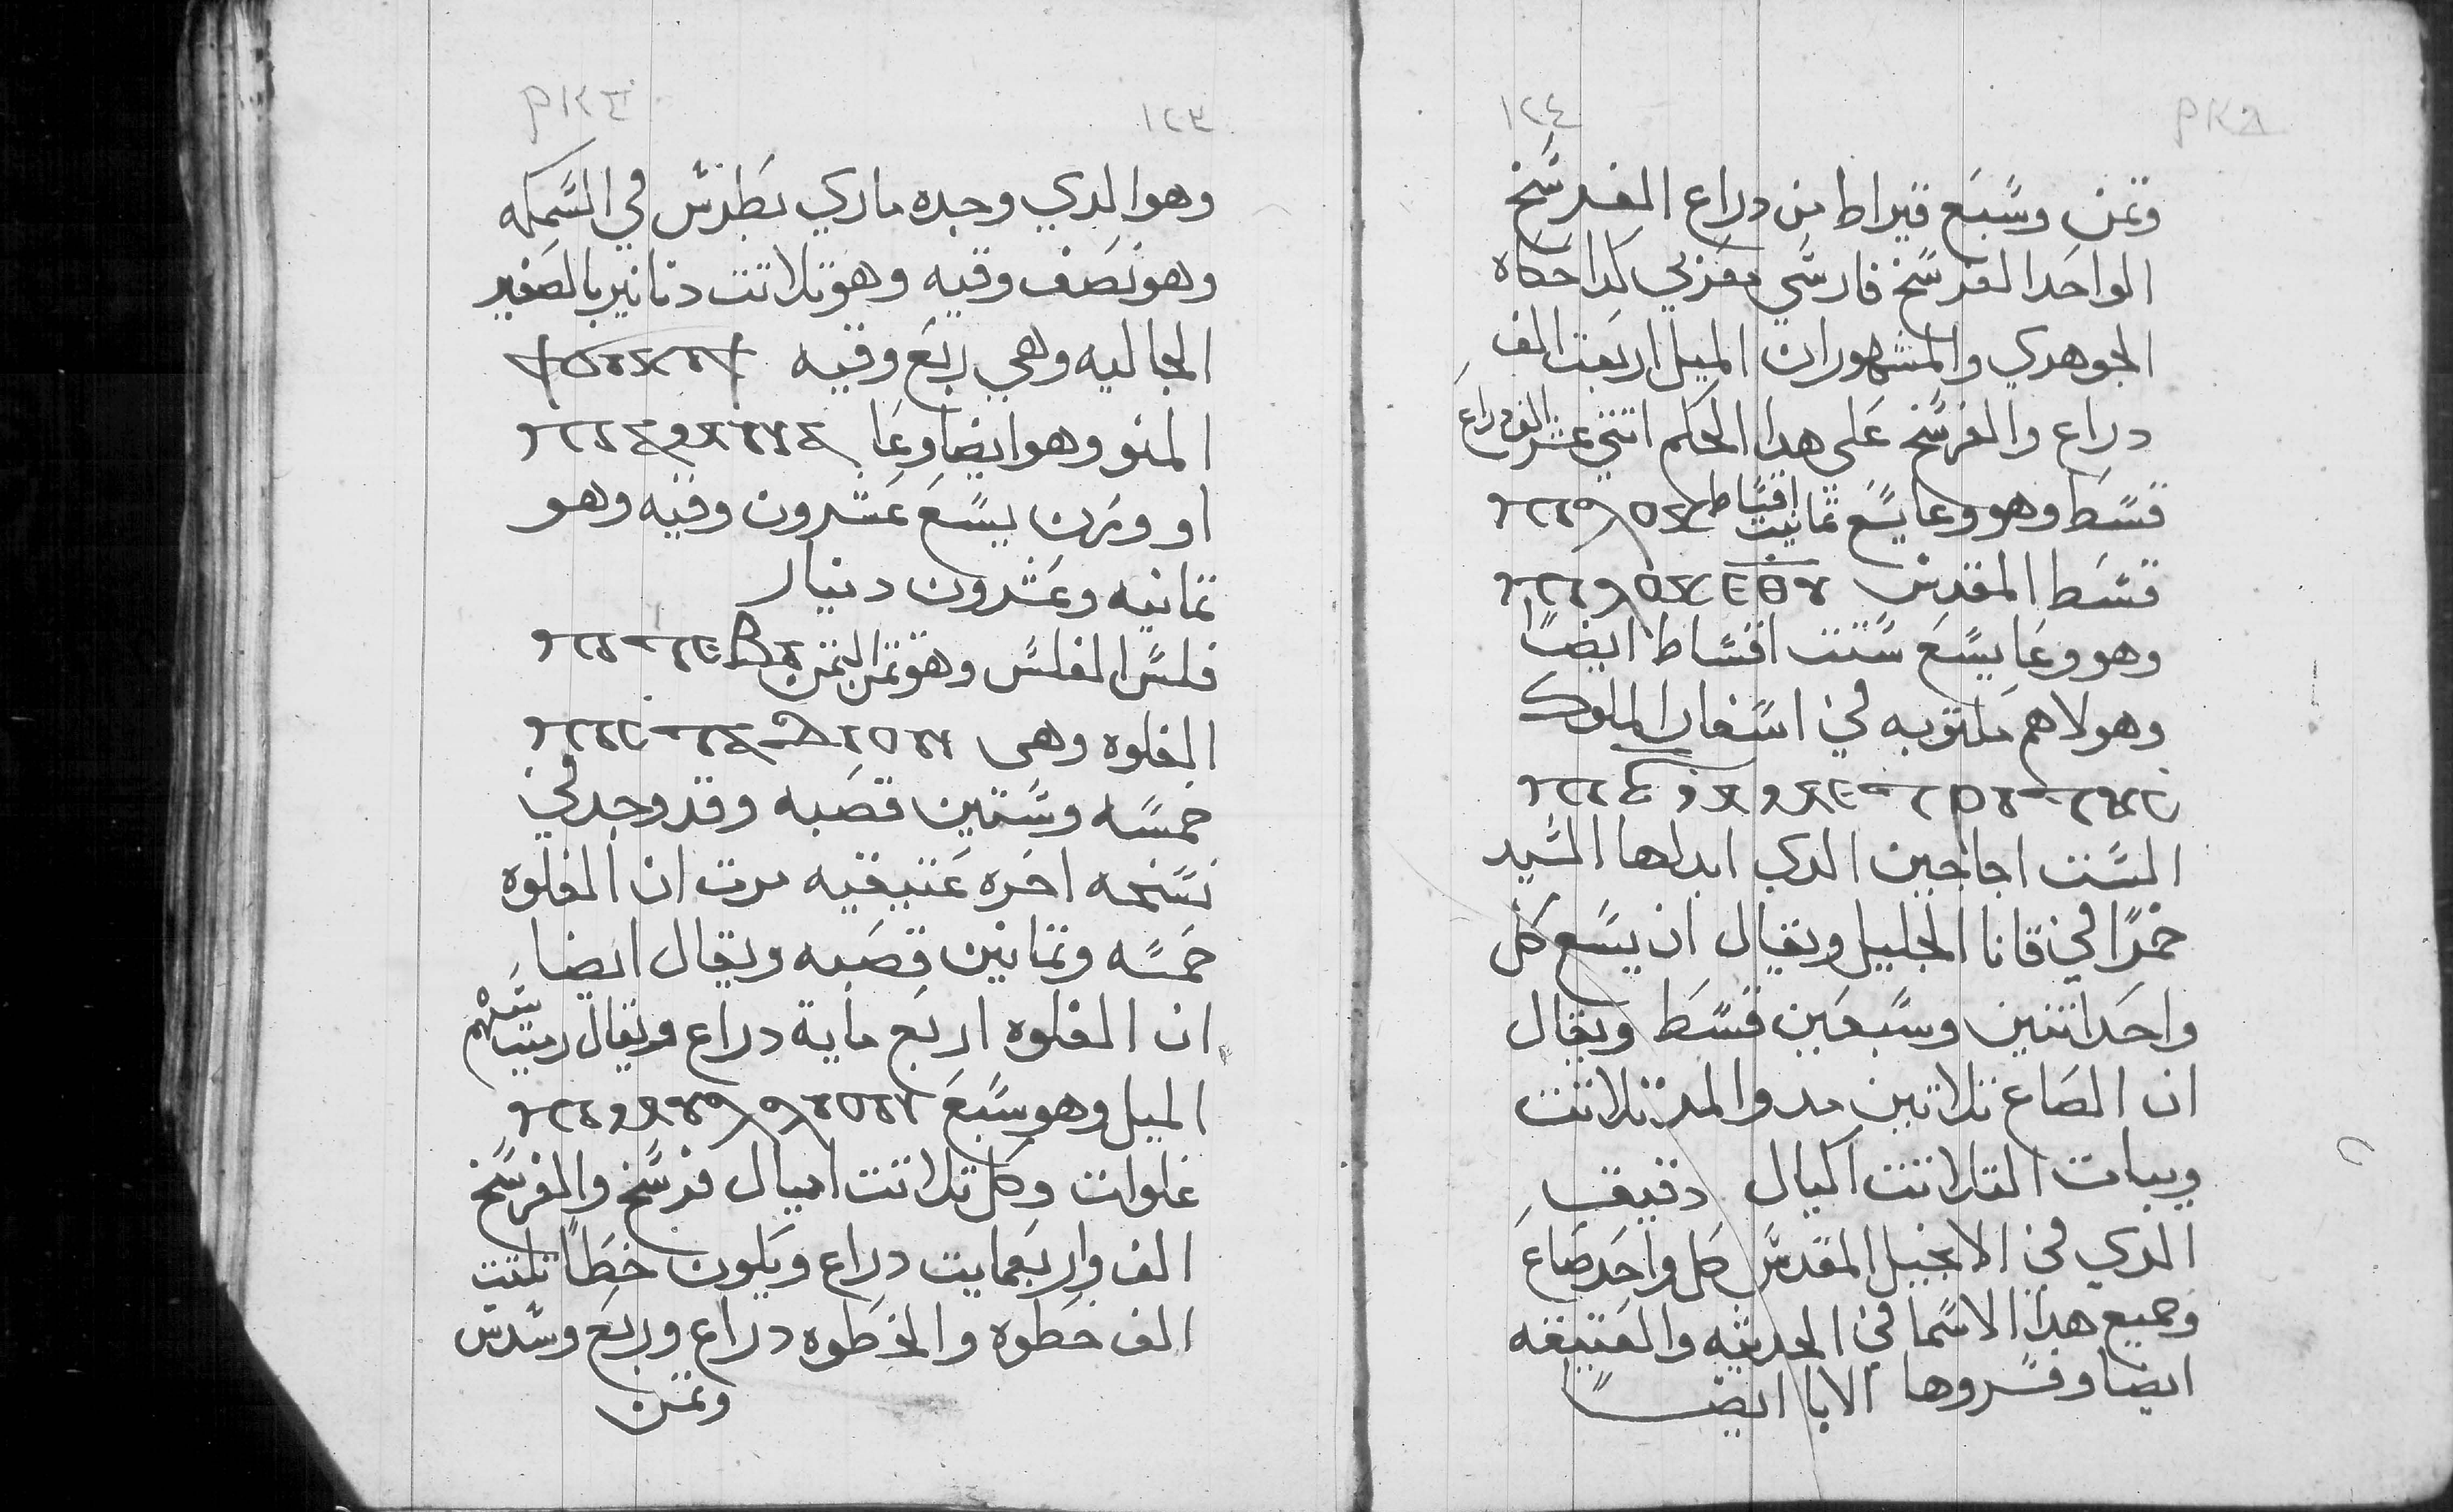 ١٢٣
وهو الدي وجده ماري بطرس في السمكه
وهو نصف وقيه وهو تلاتت دنانير بالصغير
الجاليه وهي ربع وقيه
المنو وهو ايضا وعا
او وزن يسع عشرون وقيه وهو
تمانيه وعشرون دنيار
فلس الفلس وهو تمن التمن
الغلوه وهى
خمسه وستين قصبه وقد وجد في
نسخه اخره عتيقيه مرت ان الغلوه
خمسه وتمانين قصبه ويقال ايضا
ان الغلوه اربع ماية دراع ويقال رميت سهم
الميل وهو سبع
غلوات وكل تلاتت اميال فرسخ والفرسخ
الف واربعمايت دراع ويكون خطا تلتيت
الف خطوه والخطوه دراع وربع وسدس
وتمن
١٢٤
وتمن وسبع قيراط من دراع الفرسخ
الواحد الفرسخ فارسي معزبي كدا حكاه
الجوهري والمشهور ان الميل اربعت الف
دراع والفرسخ علي هدا الحكم اتني عشر الف دراع
قسط وهو وعا يسع تمانيت اقساط
قسط المقدس
وهو وعا يسع ستت اقساط ايضا
وهولاهم مكتوبه في اسفار الملوك
الستت اجاجين الدي ابدلها السيد
خمرا في قانا الجليل ويقال ان يسع كل
واحد اتنين وسبعين قسط ويقال
ان الصاع تلاتين مد والمد تلاتت
ويبات التلاتت اكيال دقيق
الدي في الانجيل المقدس كل واحد صاع
وجميع هدا الاسما في الحديثه والعتيقه
ايضا وفسروها الابا ايضا